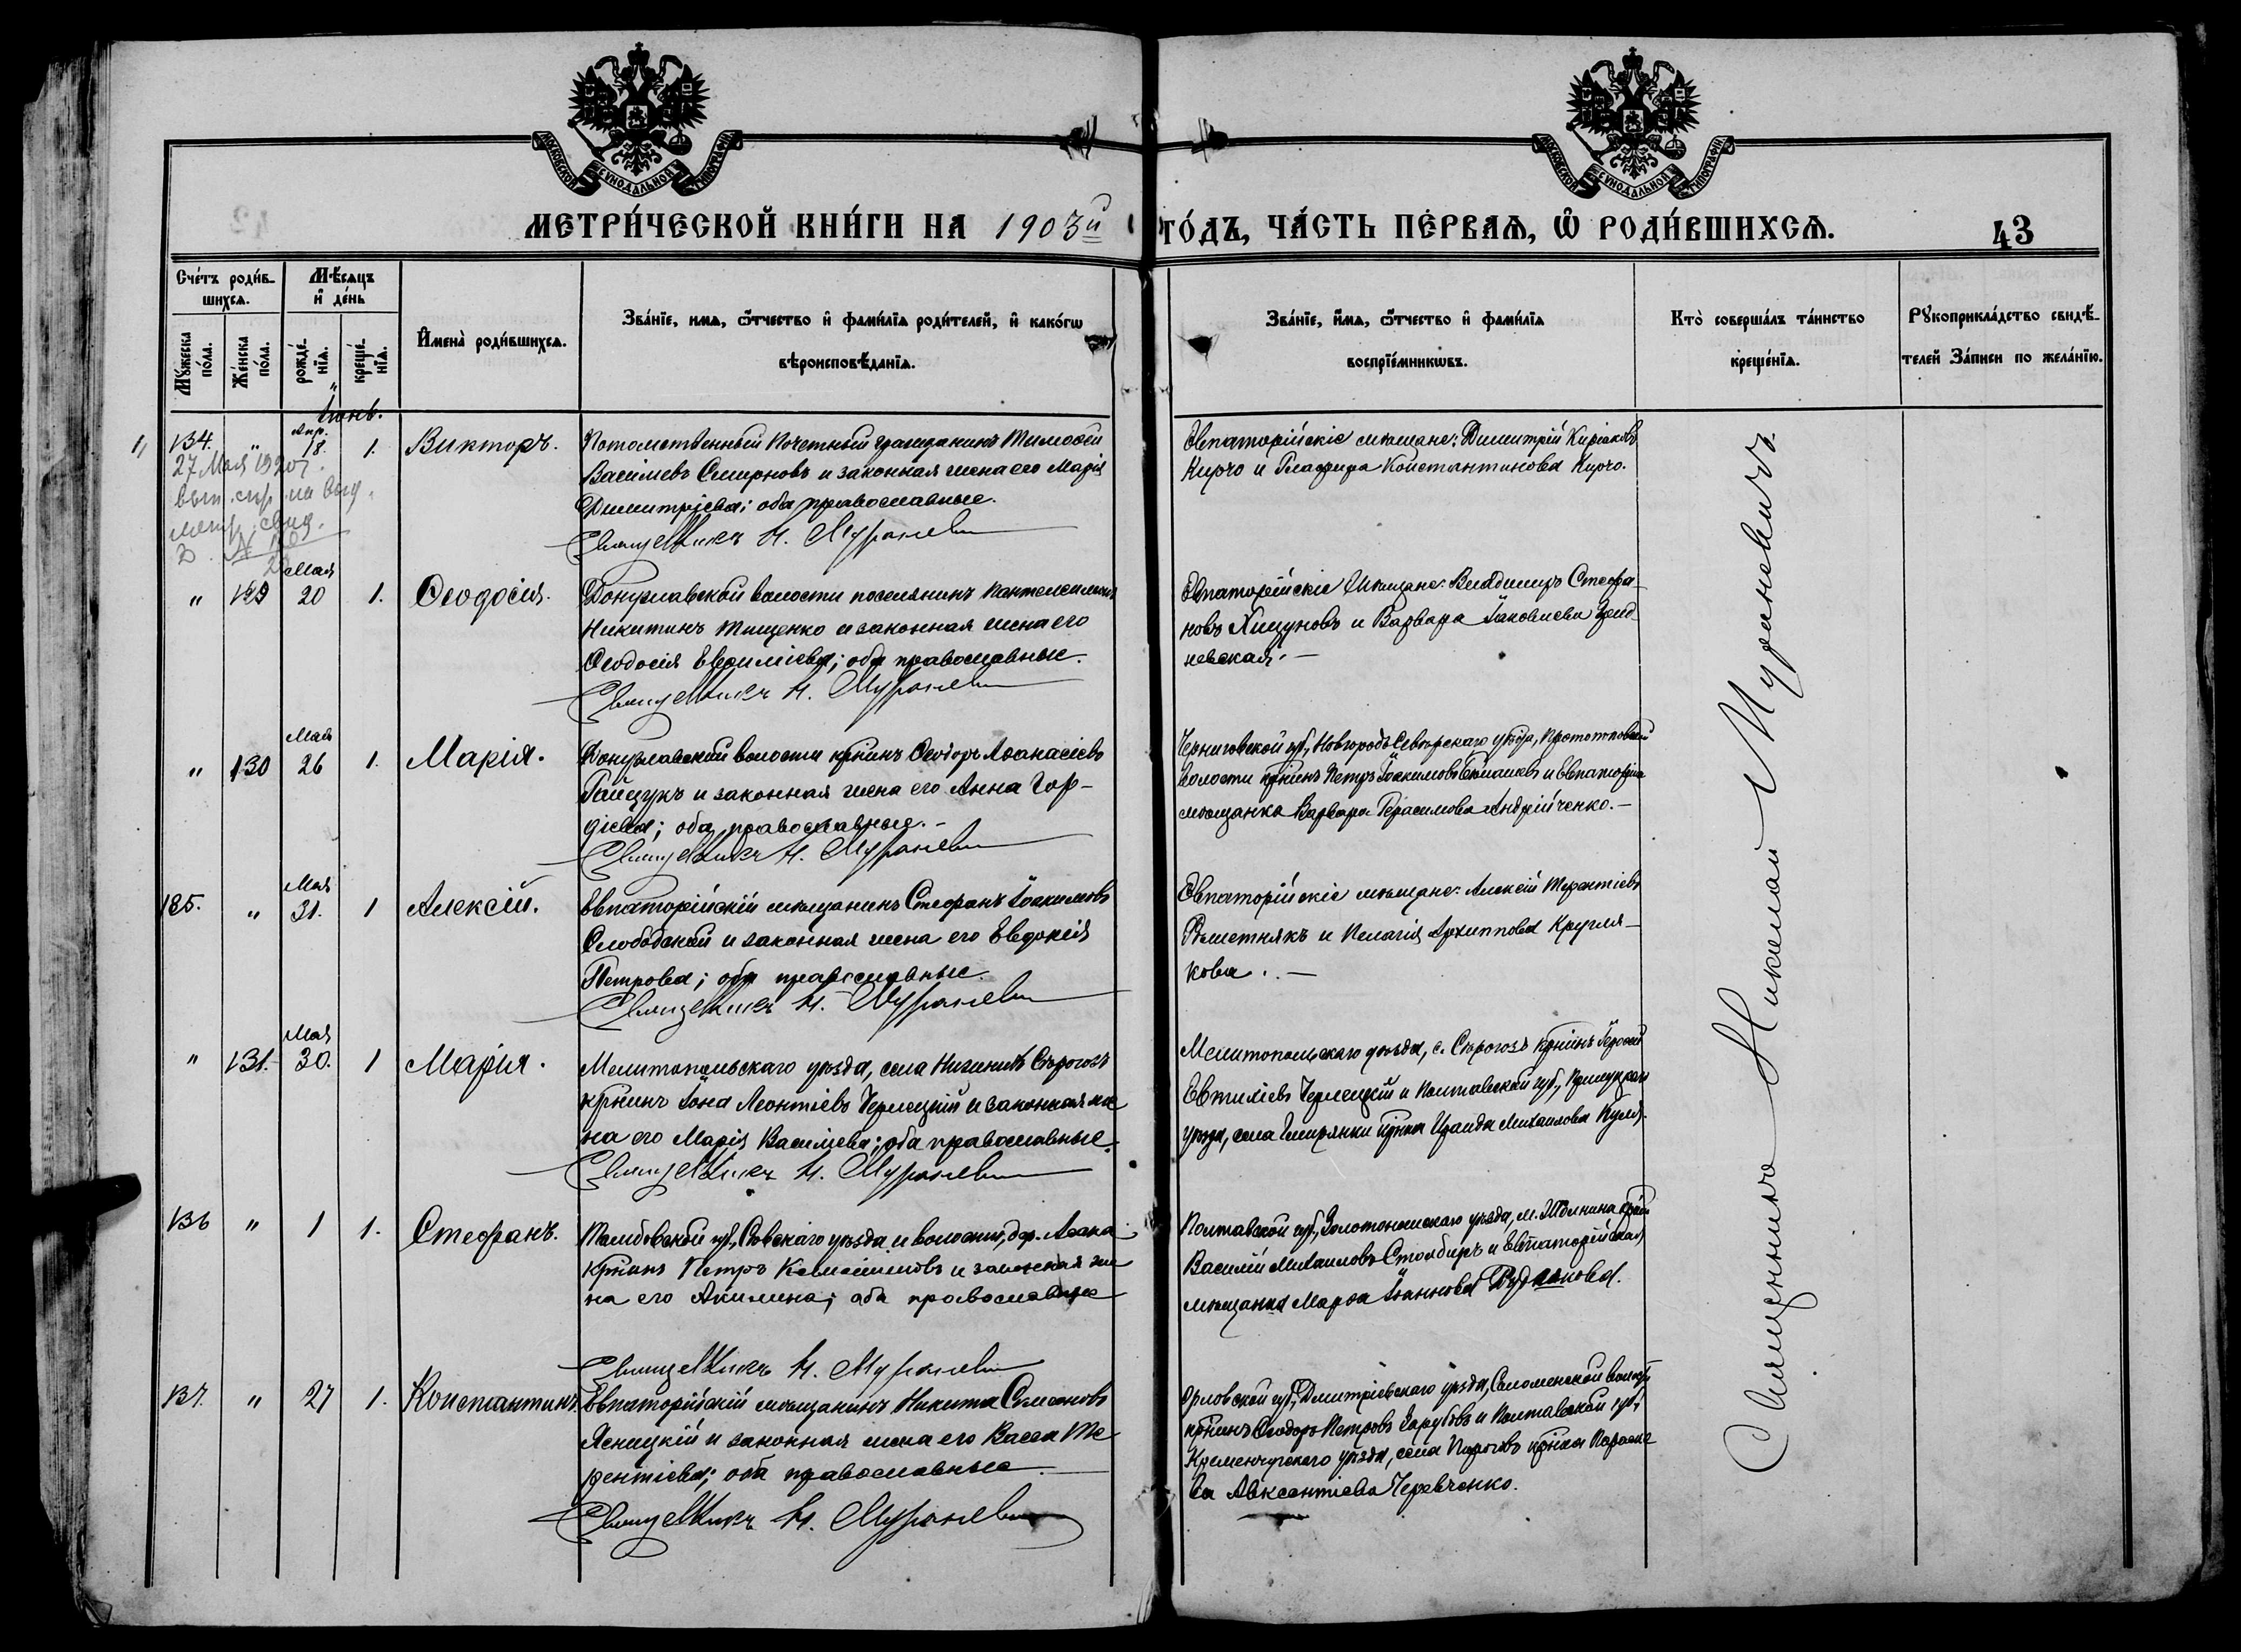 МОСКОВСКОЙ СѴНОДАЛЬНОЙ ТИПОГРАФІИ
МОСКОВСКОЙ СѴНОДАЛЬНОЙ ТИПОГРАФІИ
МЕТРИ́ЧЕСКОЙ КНИ́ГИ НА 1903й ГО́ДЪ, ЧА́СТЬ ПЕ́РВАѦ, Ѡ҆ РОДИ́ВШИХСѦ.
43
Сче́тъ роди́в-
шихсѧ.
Мѣ́сѧцъ
и҆ де́нь
Мꙋ́жеска
по́ла.
Же́нска
по́ла.
рожде́-
нїѧ.
креще́-
нїѧ.
И҆мена̀ роди́вшихсѧ.
Зва́нїе, имѧ, ѻ҆́тчество и҆ фами́лїѧ роди́телей, и҆ како́гѡ
вѣроисповѣ́данїѧ.
Зва́нїе, и҆́мѧ, ѻ҆́тчество и҆ фами́лїѧ
воспрїе́мникѡвъ.
Кто̀ соверша́лъ та́инство
креще́нїѧ.
Рꙋкоприкла́дство свидѣ́-
телей За́писи по жела́нїю.
Іюнь.
134. " Апр. 18. 1. Викторъ.
27 Мая 1920 г.
вып. спр. на выд.
метр. свид.
Потомственный Почетный гражданинъ Тимоѳей
Васильевъ Смирновъ и законная жена его Марія
Димитріева; оба православные.
Священникъ Н. Мураневич
Евпаторійскіе мѣщане: Димитрій Киріаковъ
Кирчо и Глафира Константинова Кирчо.
" 129 Мая 20 1. Ѳеодосія.
Донузлавской волости поселянинъ Пантелеимонъ
Никитинъ Тищенко и законная жена его
Ѳеодосія Евфиміева; оба православные.
Священникъ Н. Мураневич
Евпаторійскіе мѣщане: Владимиръ Стефа-
новъ Хицуновъ и Варвара Іаковлева
невская. —
" 130 Мая 26 1. Марія.
Донузлавской волости кр̃нинъ Ѳеодоръ Аѳанасіевъ
Гайщукъ и законная жена его Анна Гор-
діева; оба православные. –
Священникъ Н. Мураневич
Черниговской губ., Новгородъ Сѣверскаго уѣзда, Протопоповской
волости кр̃нинъ Петръ Іоакимовъ и Евпаторійская
мѣщанка Варвара Герасимова Андрійченко. —
135. " Мая 31. 1 Алексій.
Евпаторійскій мѣщанинъ Стефанъ Іоакимовъ
Слободской и законная жена его Евдокія
Петрова; оба православные.
Священникъ Н. Мураневич
Евпаторійскіе мѣщане: Алексій Терентіевъ
Рѣшетнякъ и Пелагія Архиппова Кругля-
кова. . —
" 131. Мая 30. 1 Марія.
Мелитопольскаго уѣзда, села Нижнихъ Сѣрогозъ
кр̃нинъ Іона Леонтіевъ Чернецкій и законная же
на его Марія Васильева; оба православные.
Священникъ Н. Мураневич
Мелитопольскаго уѣзда, с. Сѣрогозъ кр̃нинъ
Евтихіевъ Чернецкій и Полтавской губ., Прилуцкаго
уѣзда, села кр̃нка Ираида Михаилова
136 " 1 1. Стефанъ.
Тамбовской губ., уѣзда и волости, дер.
кр̃нинъ Петръ и законная же
на его Акилина; оба православные
Священникъ Н. Мураневич
Полтавской губ., Золотоношскаго уѣзда, м.
Василій Михаиловъ и Евпаторійская
мѣщанка Марѳа Іоаннова Рудакова.
137. " 27 1. Константинъ.
Евпаторійскій мѣщанинъ Никита Симеоновъ
Ясницкій и законная жена его Васса Те
рентіева; оба православные. —
Священникъ Н. Мураневич
Орловской губ., Дмитріевскаго уѣзда, Соломенской волости
кр̃нинъ Ѳеодоръ Петровъ Зарубовъ и Полтавской губ.,
Кременчугскаго уѣзда, села Пироговъ кр̃нка Параске
ва Авксентіева Черевченко.
Священникъ Николай Мураневичъ